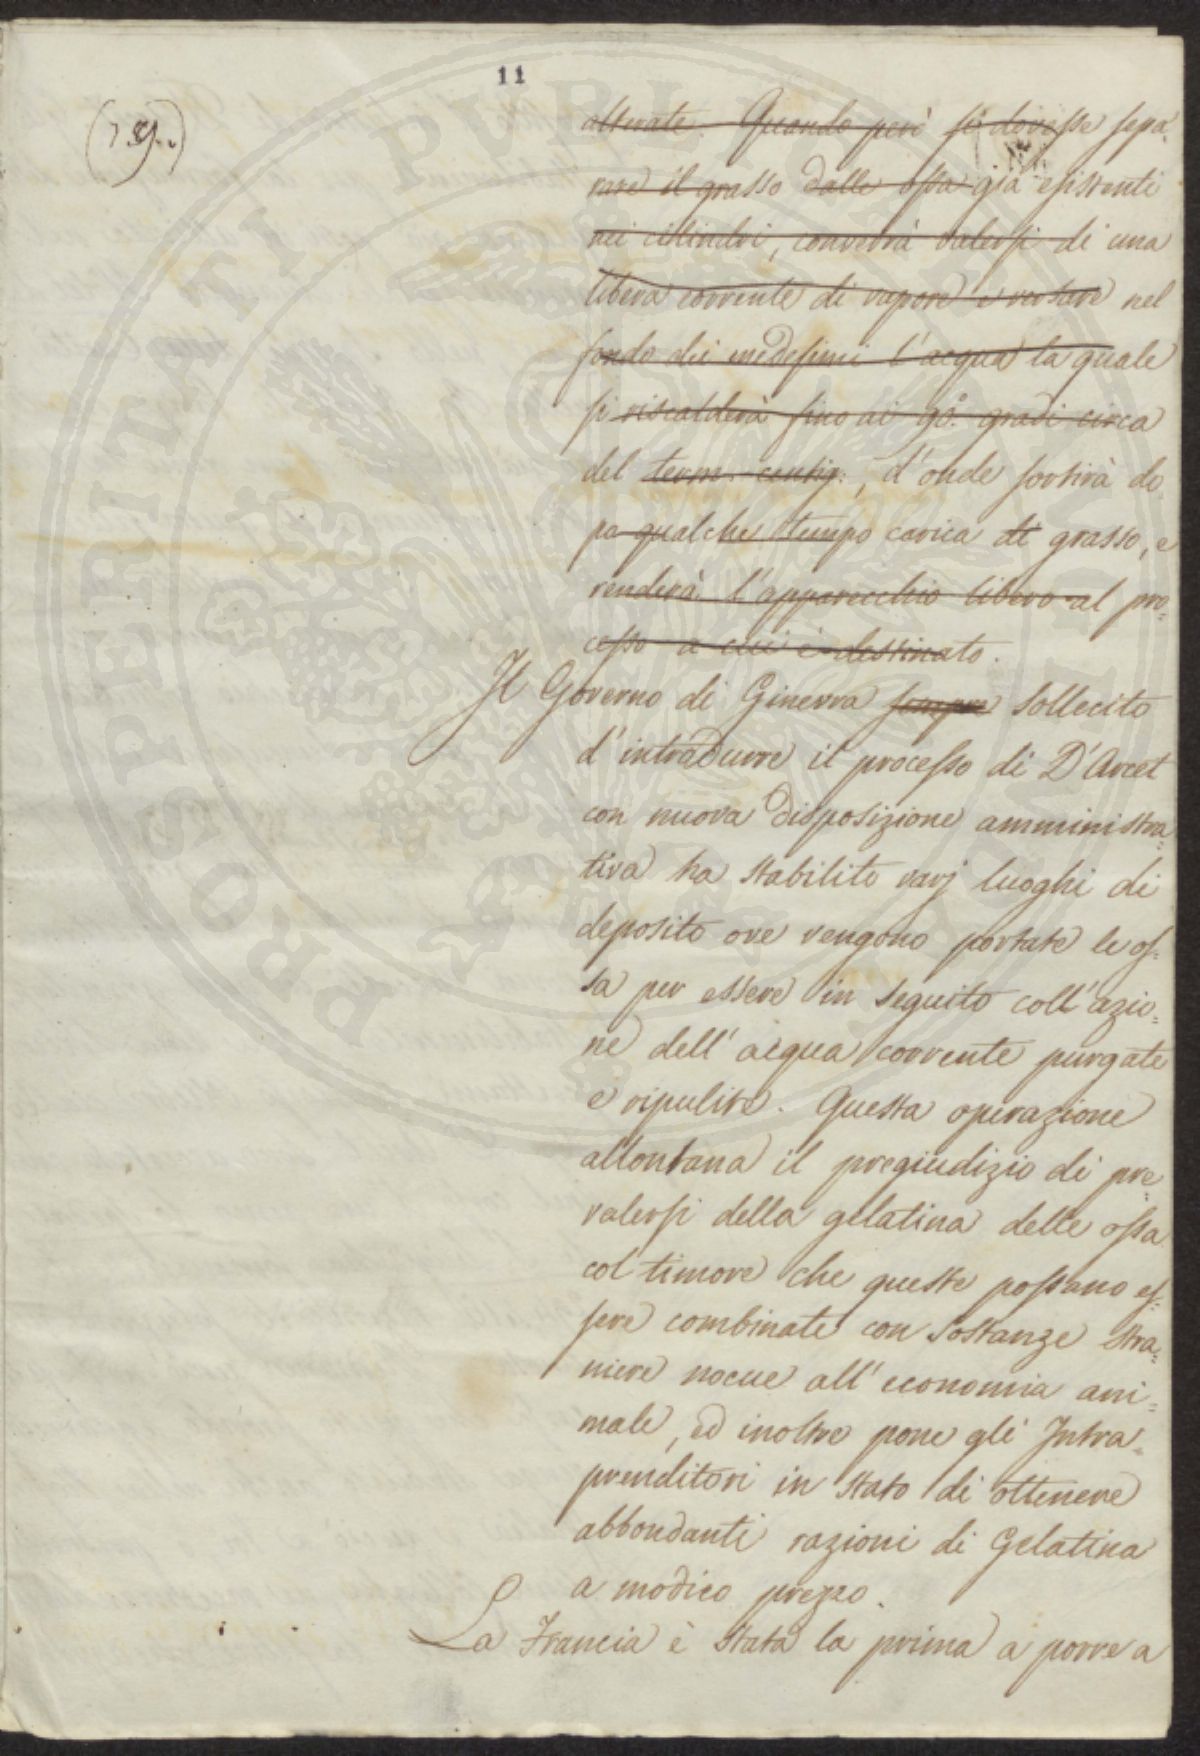 11
(79..)
alterate. Quando però si dovesse sepa,
rare il grasso dalle ossa già esistenti
nei cilindri, converrà valersi di una
libera corrente di vapore e versare nel
fondo dei medesimi l'acqua la quale
si riscalderà fino ai 90.° gradi circa
del term. centig:, d'onde sortirà do
po qualche tempo carica di grasso, e
renderà l'apparecchio libero al pro=
cesso a cui è destinato.
Il Governo di Ginevra sempre sollecito
d'intradurre il processo di D'Arcet
con nuova disposizione amministra=
tiva ha stabilito varj luoghi di
deposito ove vengono portate le os=
sa per essere in seguito coll'azio=
ne dell'acqua corrente purgate
e ripulite. Questa operazione
allontana il pregiudizio di pre=
valersi della gelatina delle ossa
col timore che queste possano es=
sere combinate con sostanze stra=
niere nocue all'economia ani=
male, ed inoltre pone gli Intra=
prenditori in stato di ottenere
abbondanti razioni di Gelatina
a modico prezzo.
La Francia è stata la prima a porre a
PROSPERITATI PUBLICAE